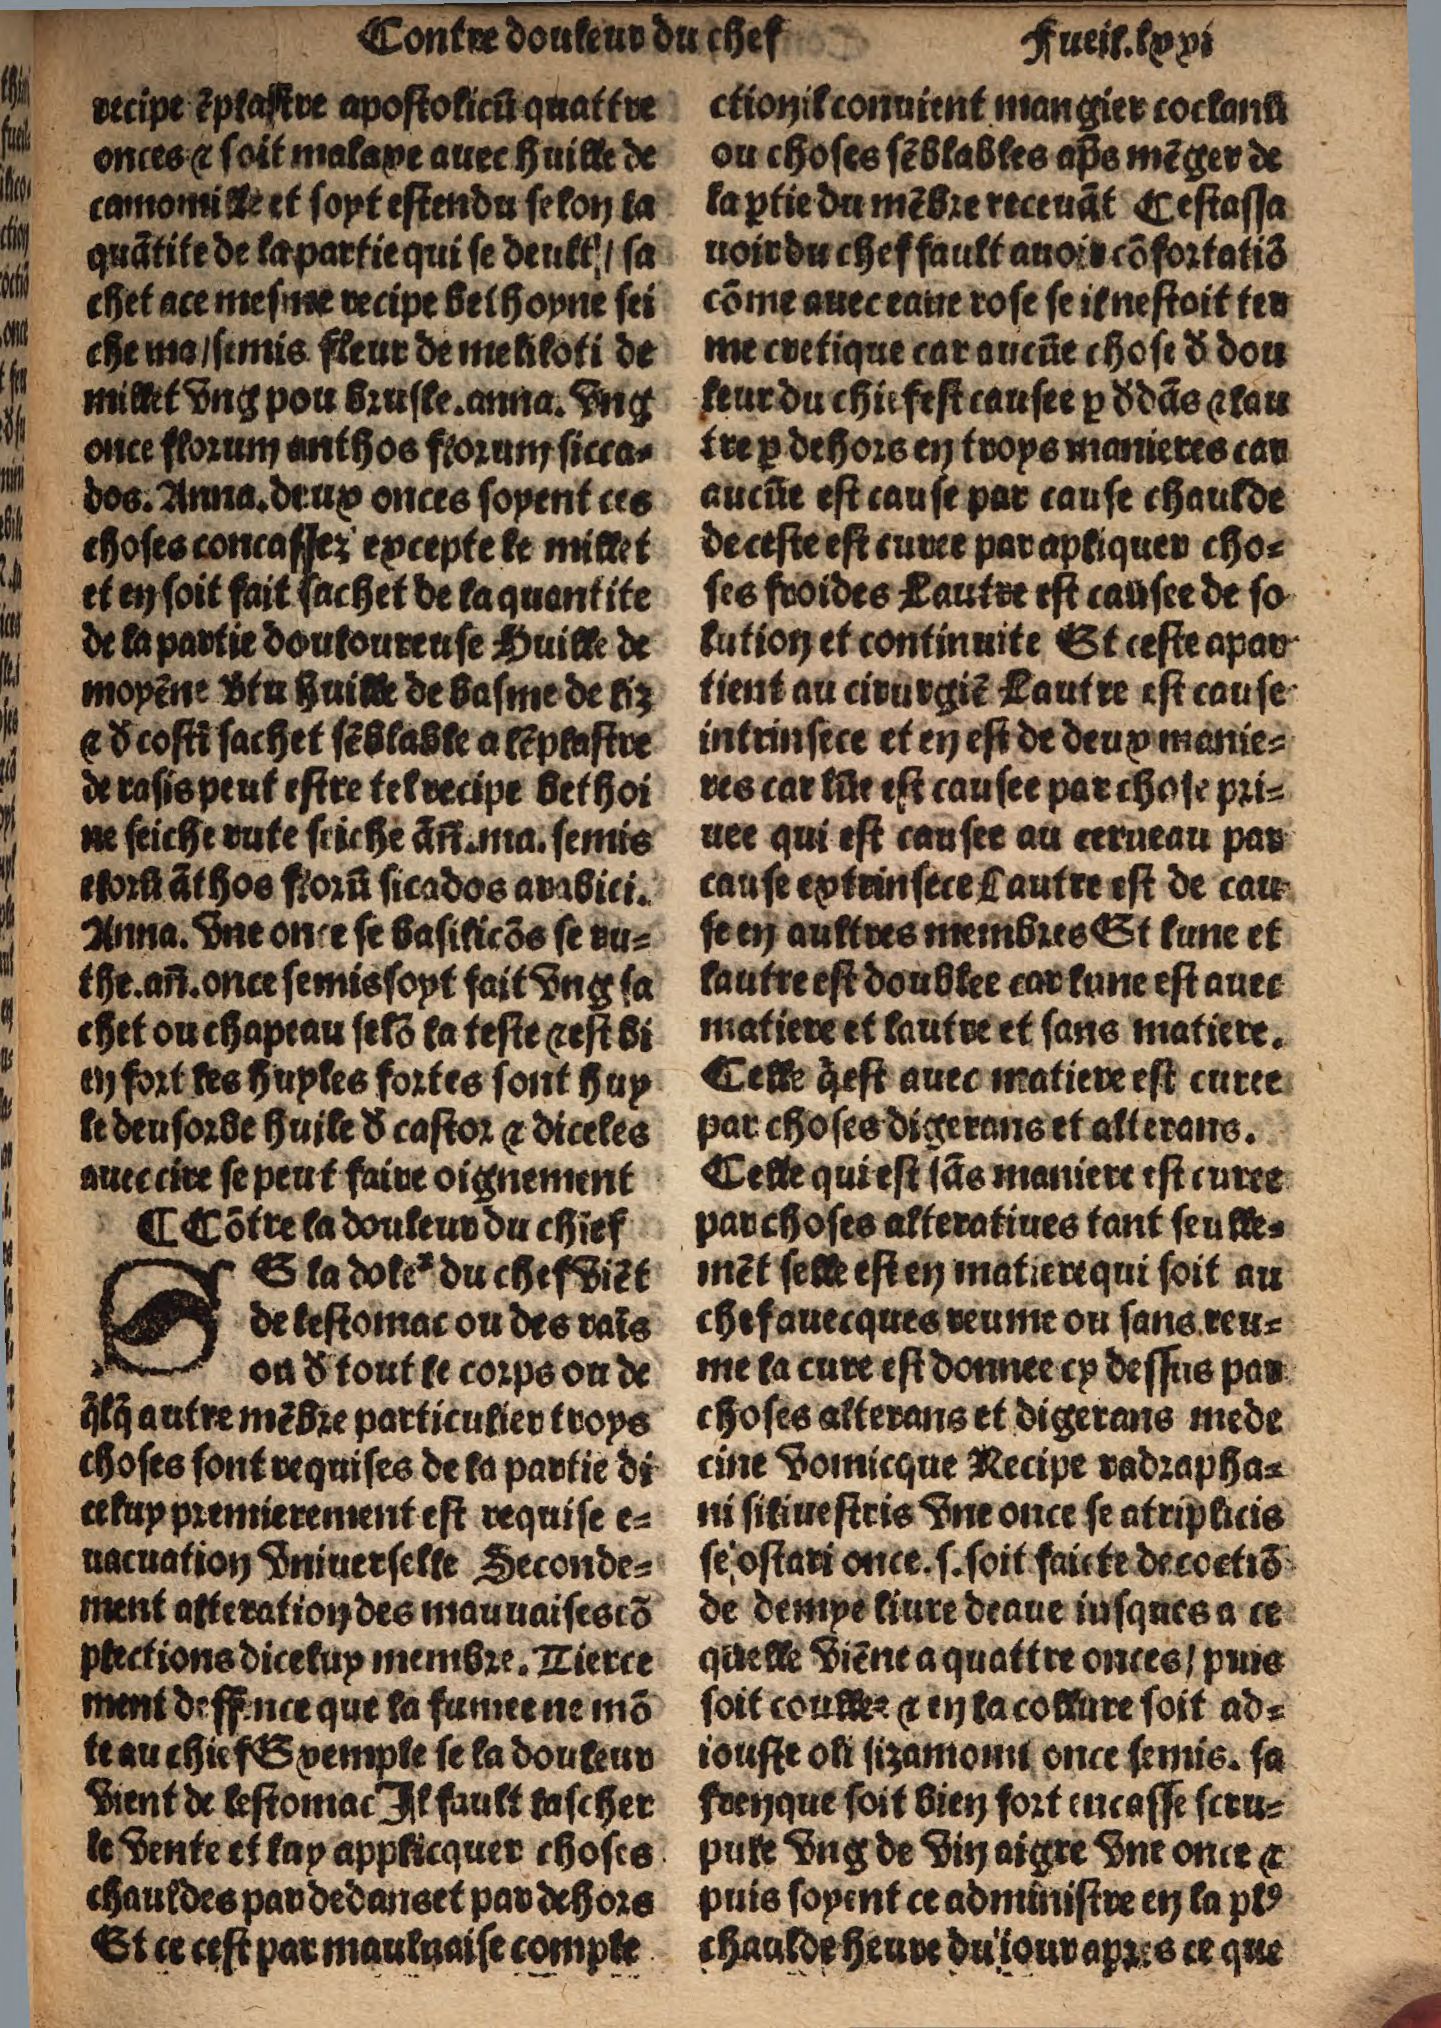 Contre douleur du chef
Fueil.lxxi
recipe ẽplastre apostolicũ quattre
onces ⁊ soit malaxe auec huille de
camomille et soyt estendu selon la
quãtite de la partie qui se deult / sa
chet ace mesme recipe bethoyne sei
che ma/semis fleur de meliloti de
millet vng pou brusle.anna. vng
once florum anthos florum sticca-
dos. Anna.deux onces soyent ces
choses concassez excepte le millet
et en soit fait sachet de la quantite
de la partie douloureuse Huille de
moyẽne vtu huille de basme de liz
⁊ d̾ costi sachet sẽblable a lẽplastre
de rasis peut estre tel recipe bethoi
ne seiche rute seiche ãn̄.ma. semis
elorũ ãthos florũ sicados arabici.
Anna. vne once se basilicõs se ru-
the.an̄.once semis soyt fait vng sa
chet ou chapeau selõ la teste ⁊ est bi
en fort les huyles fortes sont huy
le deusorbe huile d̾ castor ⁊ diceles
auec cire se peut faire oignement
¶ Cõtre la douleur du chief
SE la doleᷣ du chef viẽt
de lestomac ou des rais
ou d̾ tout le corps ou de
q̃lq̃ autre mẽbre particulier troys
choses sont requises de la partie di
celuy premierement est requise e-
uacuation vniuerselle Seconde-
ment alteration des mauuaises cõ
plections diceluy membre. Tierce
ment deffence que la fumee ne mõ
te au chief Exemple se la douleur
vient de lestomac Il fault lascher
le vente et lay applicquer choses
chauldes par dedans et par dehors
Et ce cest par maulvaise comple
ction il conuient mangier coclanũ
ou choses sẽblables ap̃s mẽger de
la ꝑtie du mẽbre receuãt Cest assa
uoir du chef fault auoir cõfortatiõ
cõme auec eaue rose se il nestoit ter
me cretique car aucũe chose d̾ dou
leur du chief est causee ꝑ d̾dãs ⁊ lau
tre ꝑ dehors en troys manieres car
aucũe est cause par cause chaulde
de ceste est curee par apliquer cho-
ses froides Lautre est causee de so
lution et continuite Et ceste apar
tient au cirurgiẽ Lautre est cause
intrinsece et en est de deux manie-
res car lũe est causee par chose pri-
uee qui est causee au cerueau par
cause extrinsece Lautre est de cau
se en aultres membres Et lune et
lautre est doublee car lune est auec
matiere et lautre et sans matiere.
Celle q̃ est auec matiere est curee
par choses digerans et alterans.
Celle qui est sãs maniere est curee
par choses alteratiues tant seulle-
mẽt selle est en matiere qui soit au
chef auecques reume ou sans reu-
me la cure est donnee cy dessus par
choses alterans et digerans mede
cine vomicque Recipe radrapha-
ni siluestris vne once se atriplicis
se ostari once.s.soit faicte decoctiõ
de demye liure deaue iusques a ce
quelle viẽne a quattre onces/ puis
soit coullee ⁊ en la collure soit ad-
iouste oli sizamomi once semis. sa
frenque soit bien fort encasse scru-
pule vng de vin aigre vne once ⁊
puis soyent ce administre en la plꝰ
chaulde heure du iour apres ce que